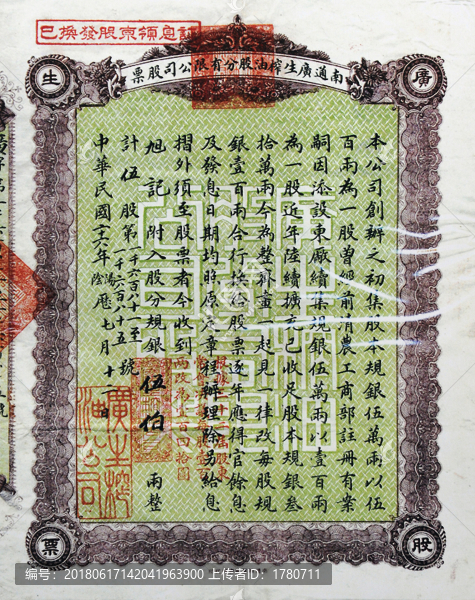 已換發股票領息訖
南通廣生榨油股分有限公司股票
廣
生
本公司創辦之初集股本規銀伍萬兩以伍
百兩為一股曾經前清農工商部註冊有案
嗣因添設東廠續集規銀伍萬兩以壹百兩
為一股近年陸續擴充已收足股本規銀叁
拾萬兩今為整齊畫一起見一律改每股規
銀壹百兩合行換給股票逐年應得官餘息
及發息日期均照原定章程辦理除另給息
摺外須至股票者今收到
旭記 附入股分規銀 伍伯 兩整
計伍股第一千六百八十一至一千六百八十五號
中華民國十六年陽陰曆七月十一日
廣生榨油公司
股
票
编号：20180617142041963900 上传者ID：1780711